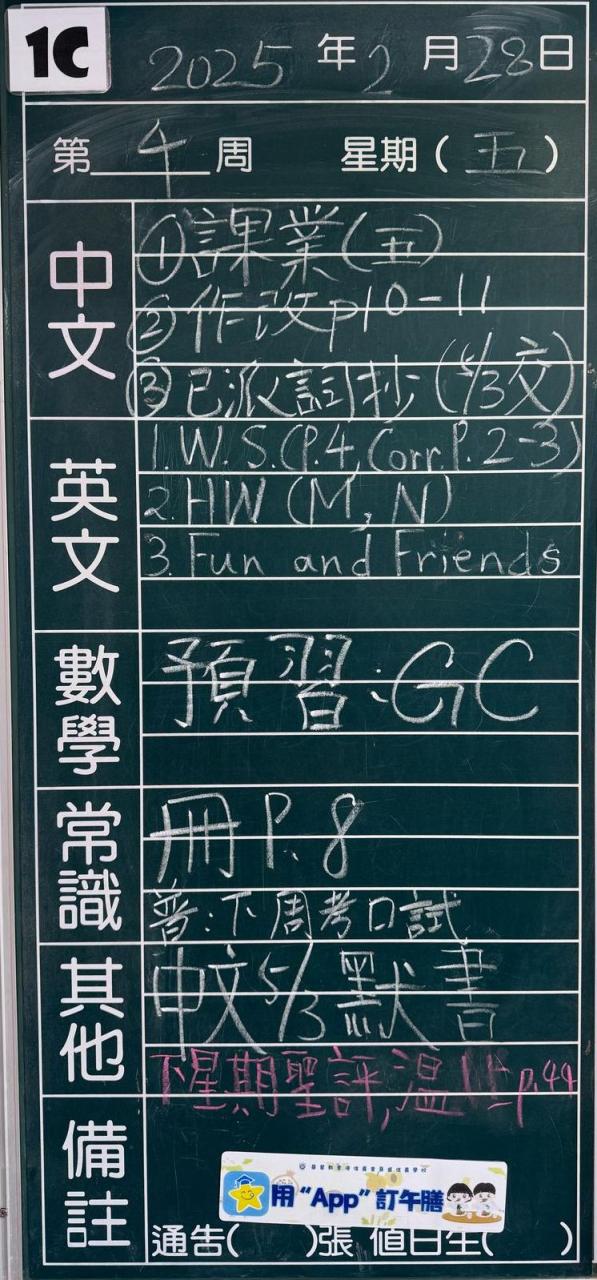 1C
2025 年 2 月 28 日
第 4 周 星期（五）
中文
①課業(五)
②作改p10-11
③已派詞抄(5/3交)
英文
1. W.S.(P.4, Corr.P.2-3)
2. HW (M, N)
3. Fun and Friends
數學
預習:GC
常識
冊P.8
普:下周考口試
其他
中文5/3默書
下星期聖評,溫 p.44
備註
用“App”訂午膳
通告( )張 值日生( )